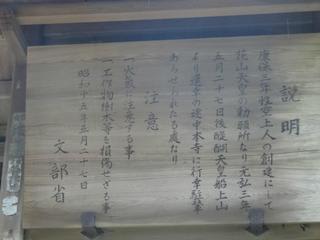 説明
康保三年性空上人の創建にして
花山天皇の勅願所なり元弘三年
五月二十七日後醍醐天皇船上山
より還幸の途中本寺に行幸駐輦
あらせられたる處なり
注意
一火氣に注意する事
一工作物樹木等を損傷せざる事
昭和十五年五月二十七日
文部省